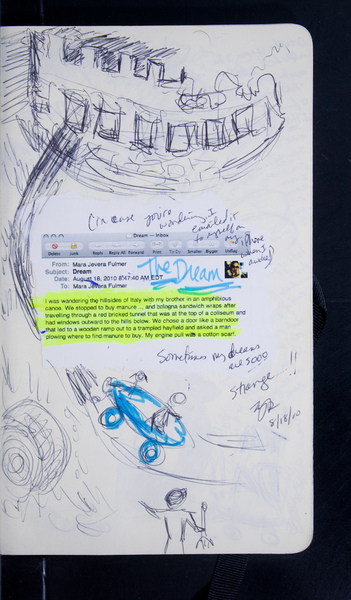 (in case you're
wondering, I
emailed it
to myself on
iPhone
when I
awoke)
Dream — Inbox
Delete Junk Reply Reply All Forward Print To Do Smaller Bigger
From: Mara Jevera Fulmer
Subject: Dream
Date: August 18, 2010 8:47:40 AM EDT
To: Mara Jevera Fulmer
The Dream
I was wandering the hillsides of Italy with my brother in an amphibious
canoe. We stopped to buy manure ... and bologna sandwich wraps after
travelling through a red bricked tunnel that was at the top of a coliseum and
had windows outward to the hills below. We chose a door like a barndoor
that led to a wooden ramp out to a trampled hayfield and asked a man
plowing where to find manure to buy. My engine pull was a cotton scarf.
Sometimes my dreams
are sooo
strange...!!
8/18/10